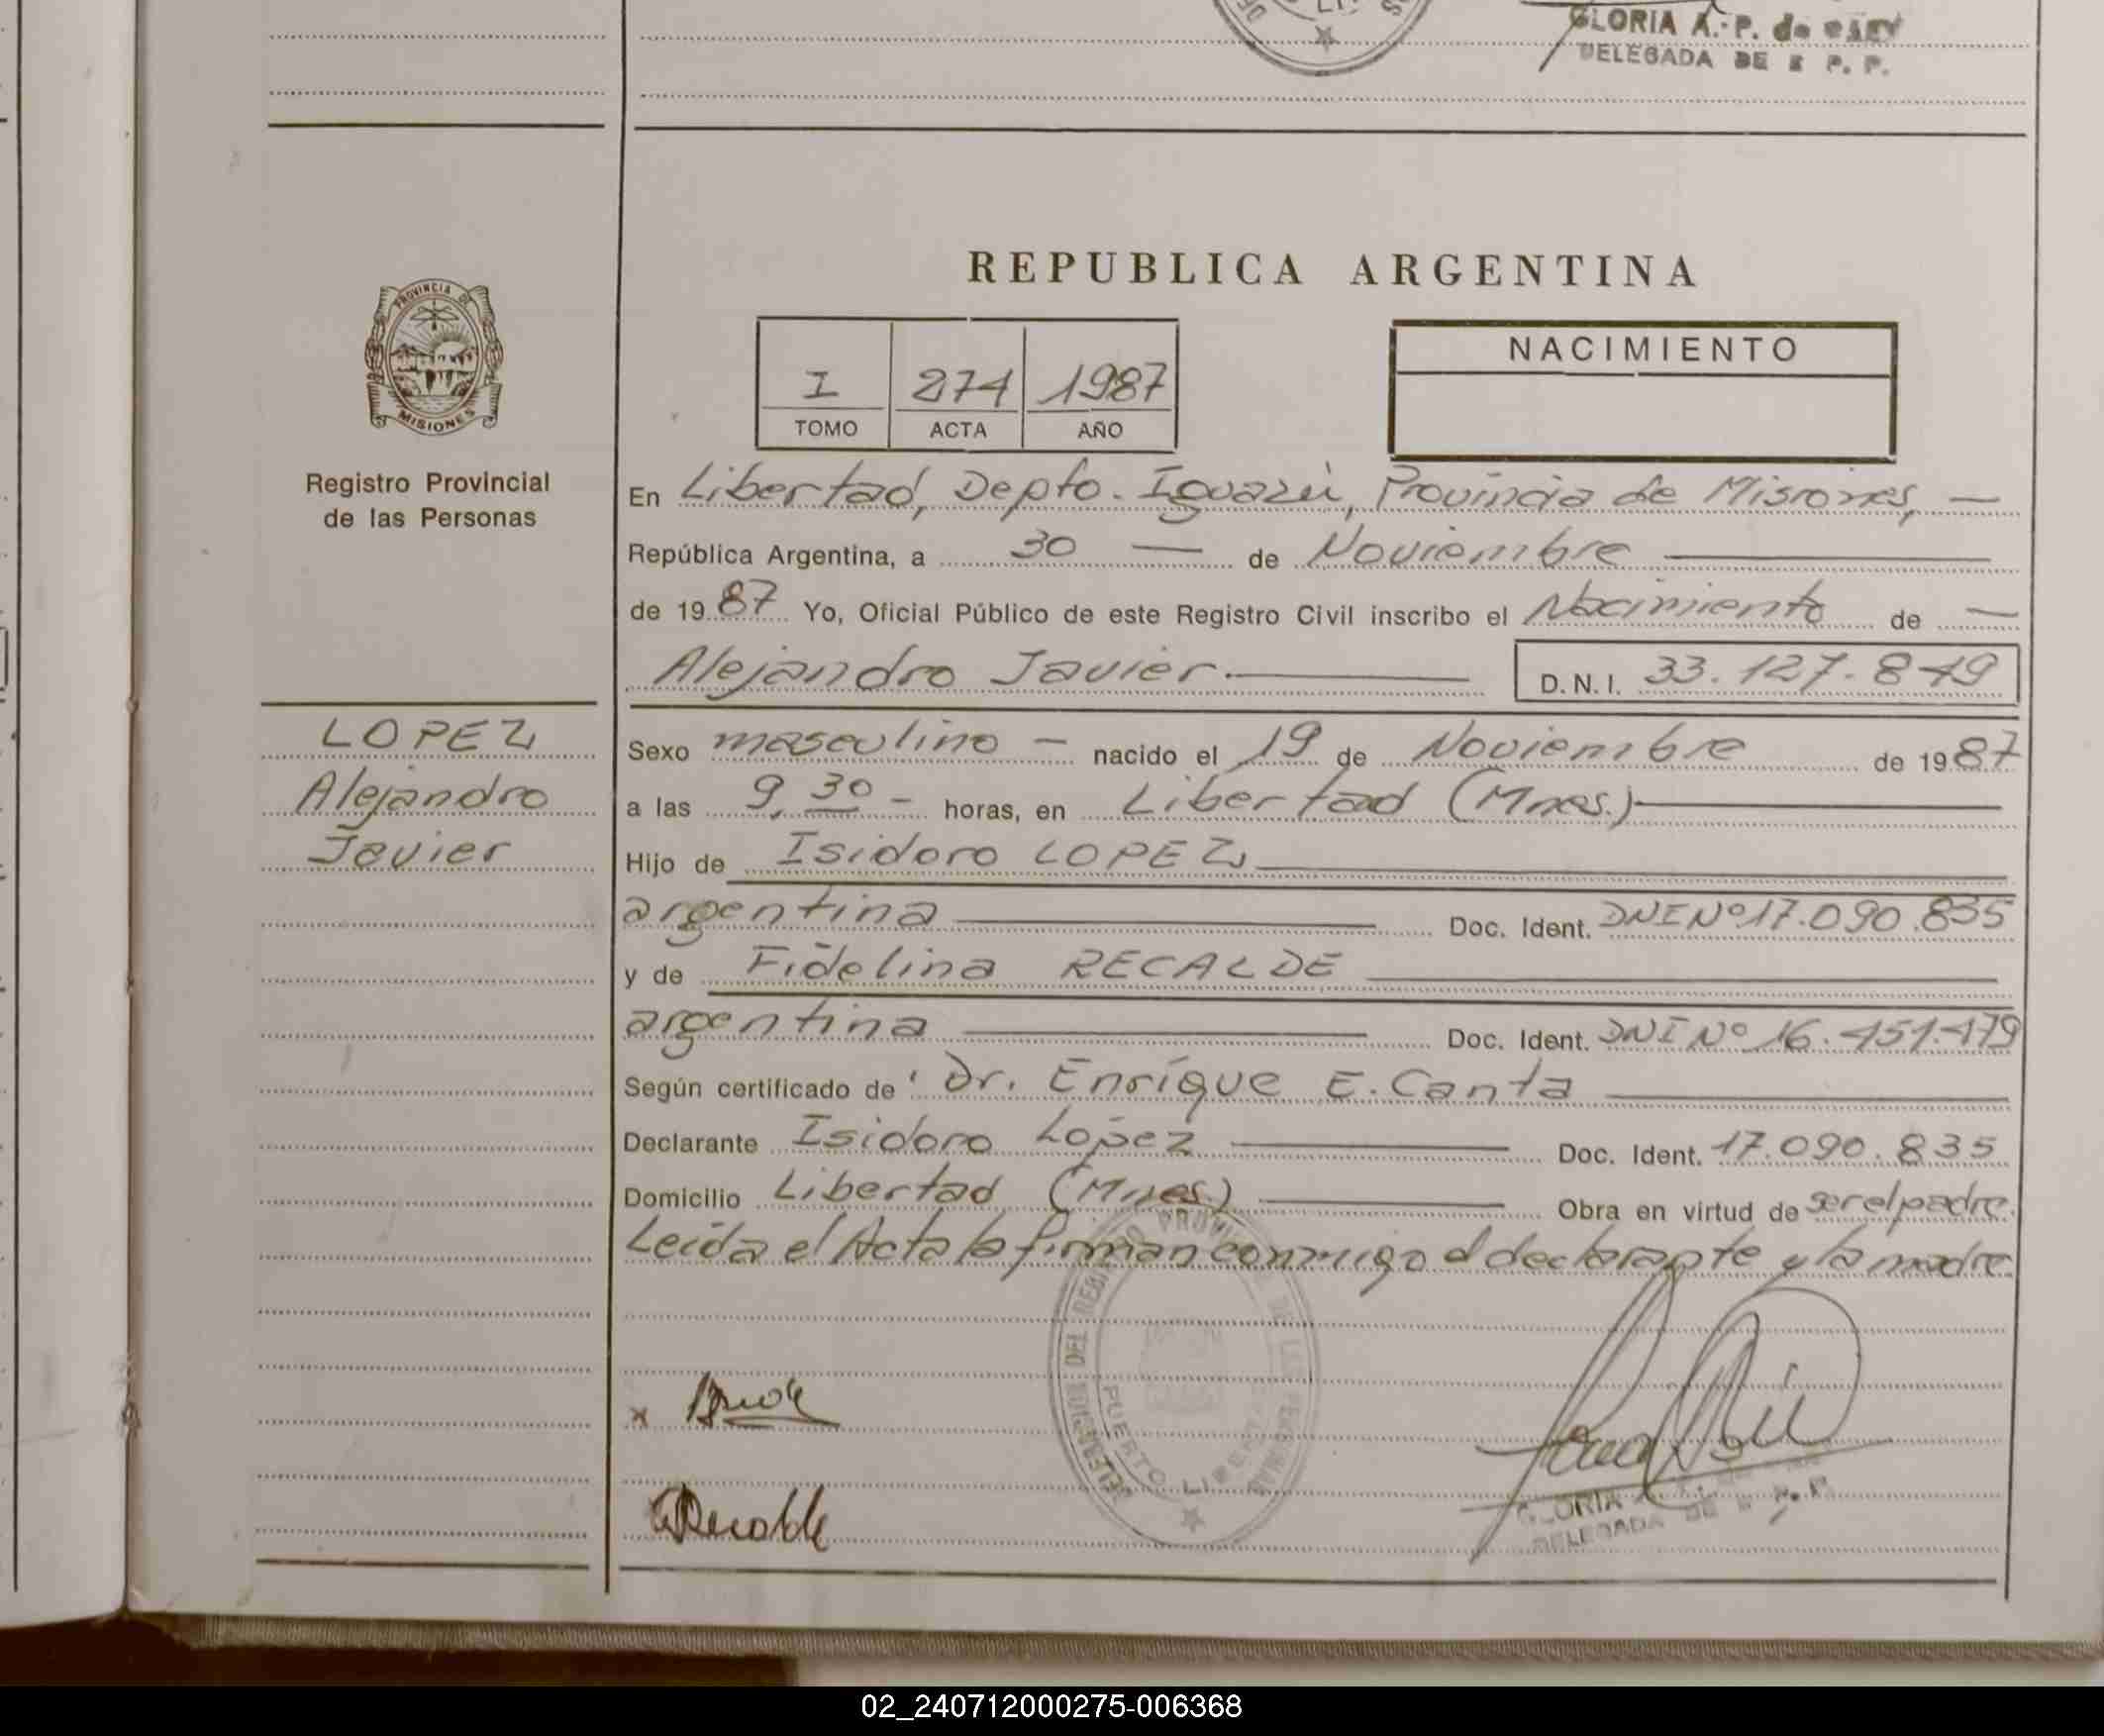 GLORIA A. P. de
DELEGADA DE P. P.
REPUBLICA ARGENTINA
PROVINCIA DE
MISIONES
Registro Provincial
de las Personas
I 274 1987
TOMO ACTA AÑO
NACIMIENTO
En Libertad, Depto. Iguazú, Provincia de Misiones, —
República Argentina, a 30 — de Noviembre —
de 1987 Yo, Oficial Público de este Registro Civil inscribo el Nacimiento de —
Alejandro Javier. — D. N. I. 33.127.849
LOPEZ
Alejandro
Javier
Sexo masculino — nacido el 19 de Noviembre de 1987
a las 9,30 — horas, en Libertad (Mnes.) —
Hijo de Isidoro LOPEZ —
argentina — Doc. Ident. DNI Nº 17.090.835
y de Fidelina RECALDE —
argentina — Doc. Ident. DNI Nº 16.451.479
Según certificado de Dr. Enrique E. Canta —
Declarante Isidoro Lopez — Doc. Ident. 17.090.835
Domicilio Libertad (Mnes.) — Obra en virtud de ser el padre.
Leída el Acta la firman conmigo el declarante y la madre
DEL REGISTRO PROVINCIAL DE LAS PERSONAS
PUERTO LIBERTAD
GLORIA
DELEGADA DE P. P.
02_240712000275-006368